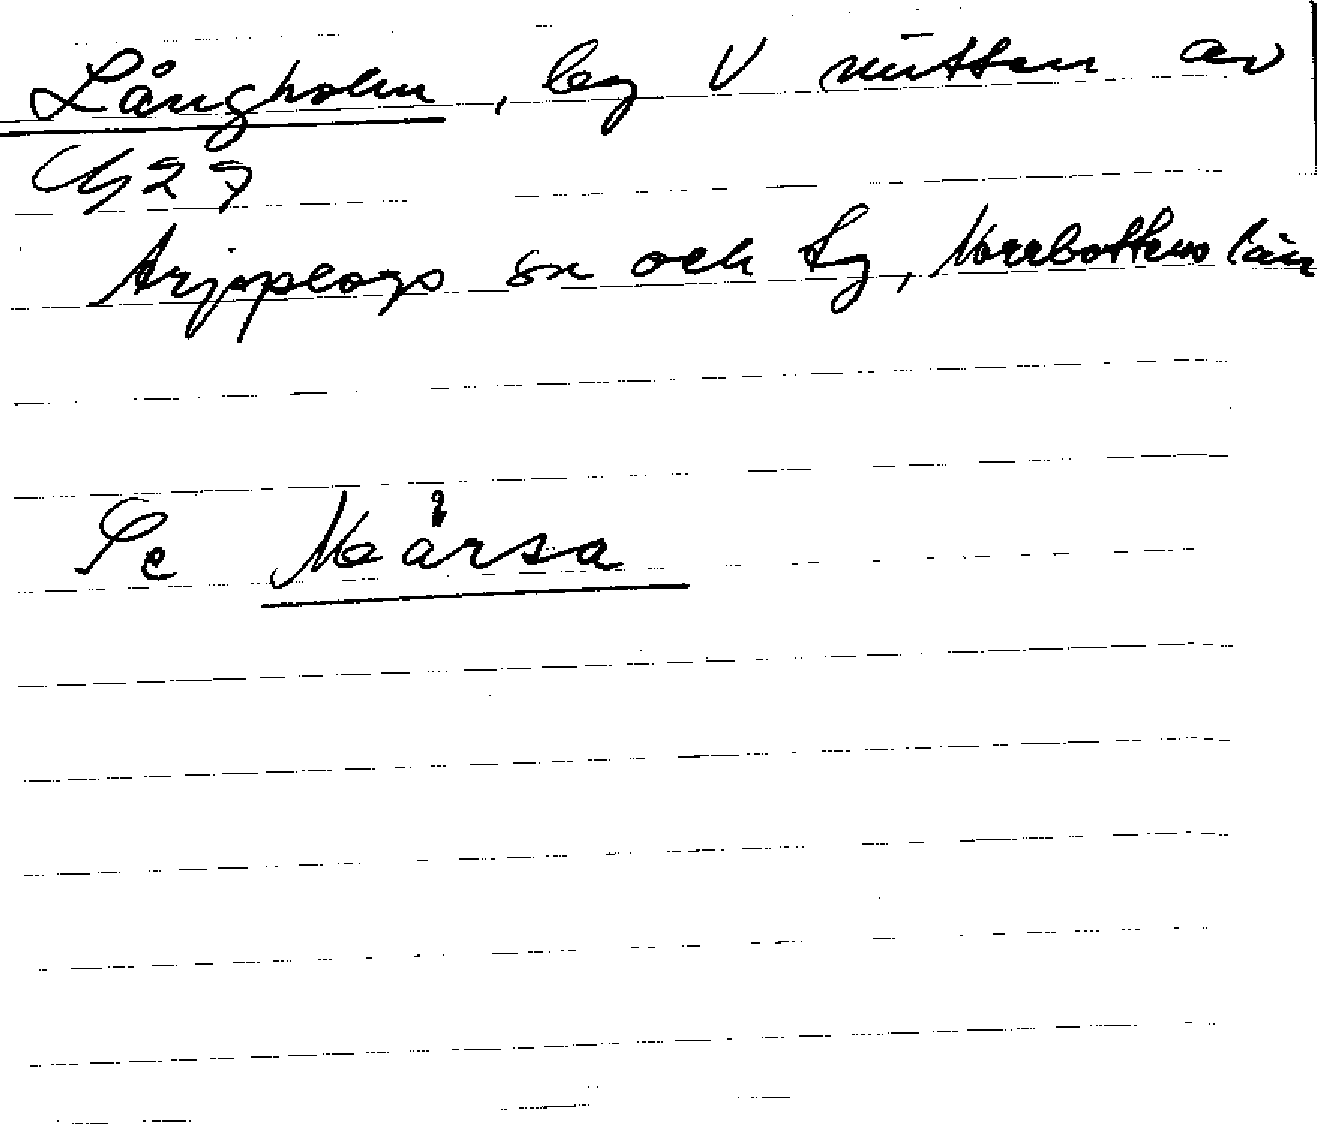 Långholm, läg V mitten av
27
Arjeplogs sn och tg, Norrbottens län
Se Mårsa